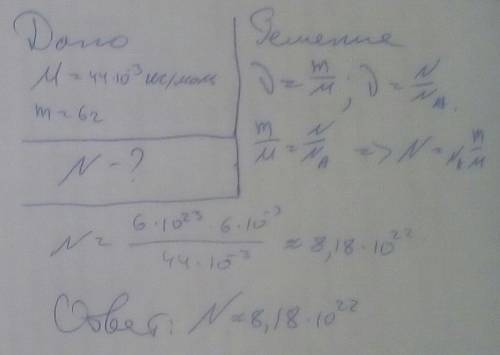 Дано
M = 44·10⁻³ кг/моль
m = 6г
N - ?
Решение
ν = m/M ; ν = N/N_A.
m/M = N/N_A => N = N_A m/M
N = (6·10²³ · 6·10⁻³)/(44·10⁻³) ≈ 8,18·10²²
Ответ: N ≈ 8,18·10²²